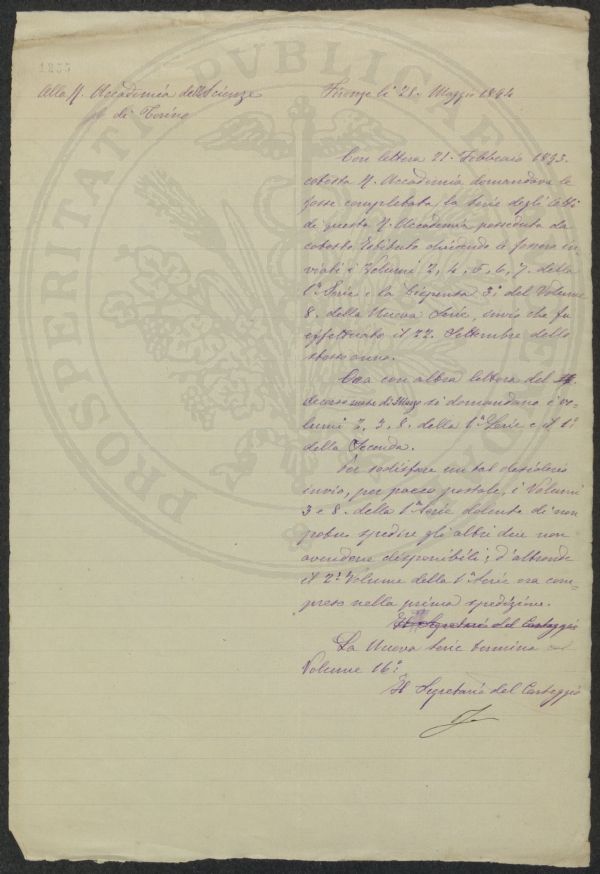 1233
Alla R. Accademia delle Scienze
di Torino
Firenze lì 28. Maggio 1894
Con lettera 21. Febbraio 1893.
cotesta R. Accademia domandava le
fosse completata la serie degli Atti
di questa R. Accademia posseduta da
cotesto Istituto chiedendo le fossero in-
viati i Volumi 2, 4, 5, 6, 7. della
1ª Serie e la Dispensa 3ª del Volume
8. della Nuova Serie, invio che fu
effettuato il 22. Settembre dello
stesso anno.
Ora con altra lettera del
decorso mese di Marzo si domandano i vo-
lumi 2, 3, 8. della 1ª Serie e il 1º
della Seconda.
Per sodisfare un tal desiderio
invio, per pacco postale, i Volumi
3 e 8. della 1ª Serie dolente di non
poter spedire gli altri due non
avendone disponibili; d'altronde
il 2º Volume della 1ª Serie era com-
preso nella prima spedizione.
Il Segretario del Carteggio
La Nuova Serie termina col
Volume 16º
Il Segretario del Carteggio
PROSPERITATIS PVBLICAE